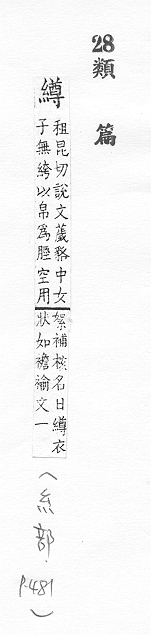 28類篇
繜
租昆切說文薉貉中女
子無絝以帛爲脛空用
絮補核名曰繜衣
狀如襜褕文一
(糸部. p.481)